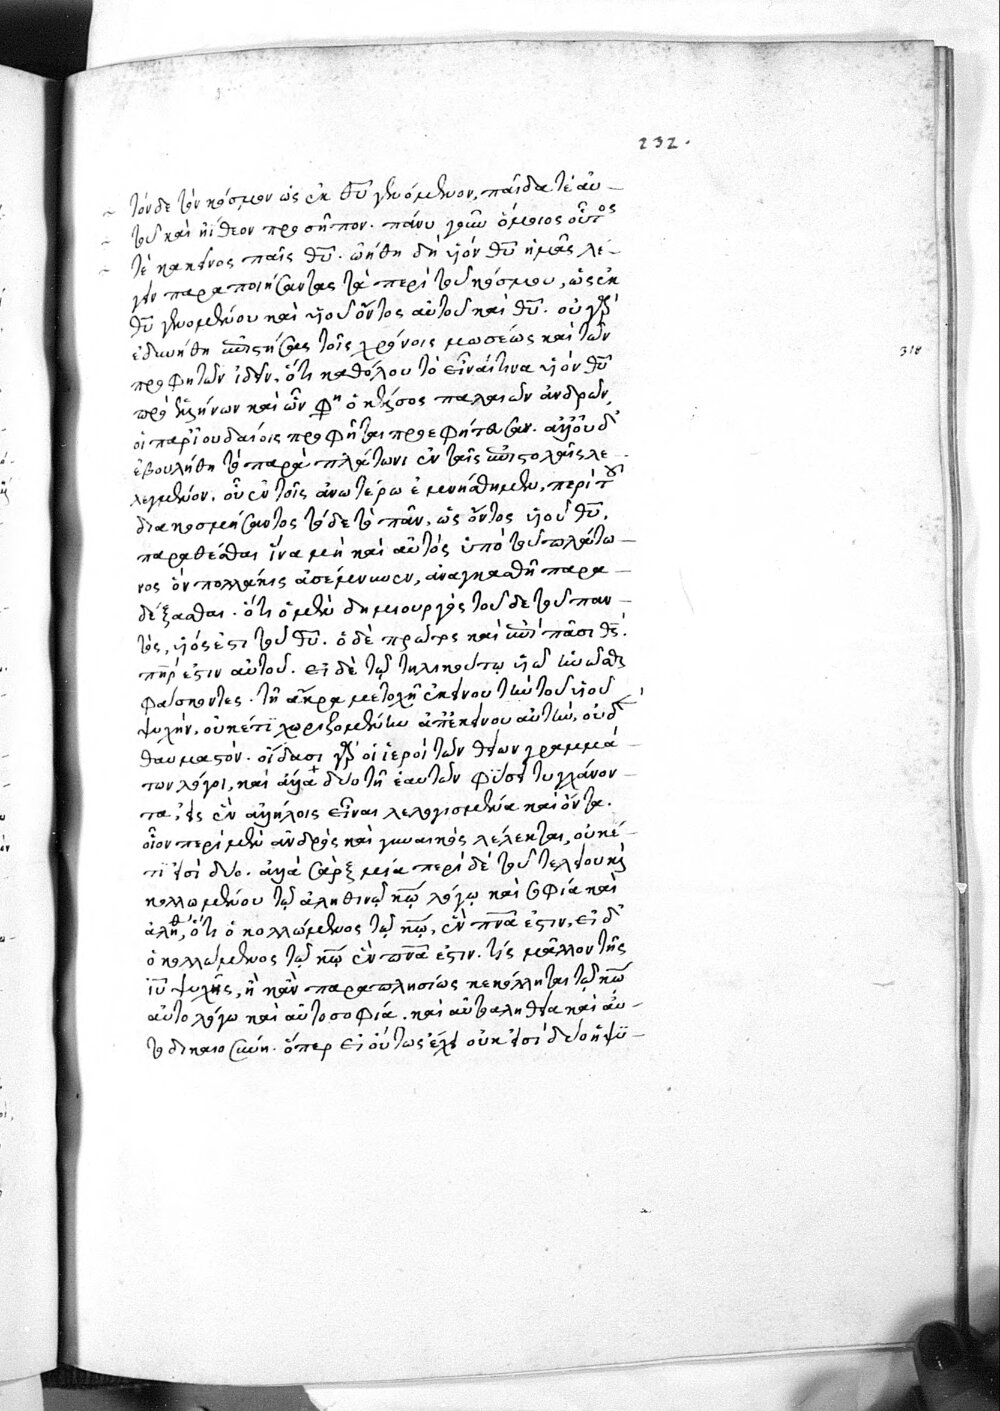 232.
τόνδε τὸν κόσμον ὡς ἐκ θ̅υ̅ γενόμενον, παῖδά τε αὐ-
τοῦ καὶ ἠΐθεον προσεῖπον. πάνυ γοῦν ὅμοιος οὗτός
τε κἀκεῖνος παῖς θ̅υ̅. ᾠήθη δὴ υἱὸν θ̅υ̅ ἡμᾶς λέ-
γειν παραποιήσαντας τὰ περὶ τοῦ κόσμου, ὡς ἐκ
θ̅υ̅ γενομένου καὶ υἱοῦ ὄντος αὐτοῦ καὶ θ̅υ̅. οὐ γὰρ
ἐδυνήθη ἐπιστήσας τοῖς χρόνοις μωσέως καὶ τῶν
προφητῶν ἰδεῖν, ὅτι καθόλου τὸ εἶναί τινα υἱὸν θ̅υ̅
318
πρὸ ἑλλήνων καὶ ὧν φη ὁ κέλσος παλαιῶν ἀνδρῶν,
οἱ παρ' ἰουδαίοις προφῆται προεφήτευσαν. ἀλλ' οὐδ'
ἐβουλήθη τὸ παρὰ πλάτωνι ἐν ταῖς ἐπιστολαῖς λε-
λεγμένον, οὗ ἐν τοῖς ἀνωτέρω ἐμνήσθημεν, περὶ τοῦ
διακοσμήσαντος τόδε τὸ πᾶν, ὡς ὄντος υἱοῦ θ̅υ̅,
παραθέσθαι ἵνα μὴ καὶ αὐτὸς ὑπὸ τοῦ πλάτω-
νος ὃν πολλάκις ἐσέμνυνεν, ἀναγκασθῇ παρα-
δέξασθαι. ὅτι ὁ μὲν δημιουργὸς τοῦδε τοῦ παν-
τός, υἱός ἐστι τοῦ θ̅υ̅. ὁ δὲ πρῶτος καὶ ἐπὶ πᾶσι θ̅ς̅.
π̅η̅ρ̅ ἐστιν αὐτοῦ. εἰ δὲ τῷ τηλικούτῳ υἱῷ ἡνῶσθαι
φάσκοντες. τῇ ἄκρᾳ μετοχῇ ἐκείνου τὴν τοῦ ἰ̅υ̅
ψυχήν, οὐκέτι χωρίζομεν αὐτὴν ἀπ' ἐκείνου, οὐδὲν
θαυμαστόν. οἴδασι γὰρ οἱ ἱεροὶ τῶν θείων γραμμά-
των λόγοι, καὶ ἄλλα δύο τῇ ἑαυτῶν φύσει τυγχάνον-
τα, εἰς ἓν ἀλλήλοις εἶναι λελογισμένα καὶ ὄντα.
οἷον περὶ μὲν ἀνδρὸς καὶ γυναικὸς λέλεκται, οὐκέ-
τι εἰσὶ δύο. ἀλλὰ σὰρξ μία περὶ δὲ τοῦ τελείου καὶ
κολλωμένου τῷ ἀληθινῷ κ̅ῷ̅ λόγῳ καὶ σοφίᾳ καὶ
ἀληθ, ὅτι ὁ κολλώμενος τῷ κ̅ῷ̅, ἓν π̅ν̅α̅ ἐστιν, εἰ δ'
ὁ κολλώμενος τῷ κ̅ῷ̅ ἓν π̅ν̅α̅ ἐστιν. τίς μᾶλλον τῆς
ἰ̅υ̅ ψυχῆς, ἢ κἂν παραπλησίως κεκόλληται τῷ κ̅ῷ̅
αὐτολόγῳ καὶ αὐτοσοφίᾳ. καὶ αὐτοαληθείᾳ καὶ αὐ-
τοδικαιοσύνῃ. ὅπερ εἰ οὕτως ἔχει οὐκ εἰσὶ δύο ἡ ψυ-